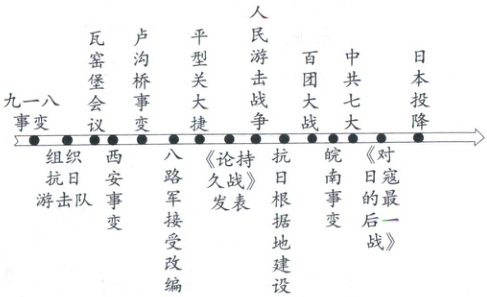 九一八
事变
瓦窑堡会议
卢沟桥事变
平型关大捷
人民游击战争
百团大战
中共七大
日本投降
组织
抗日
游击队
西安事变
八路军接受改编
《论持
久战》
发表
抗日根据地建设
皖南事变
《对
日寇
的最
后一
战》